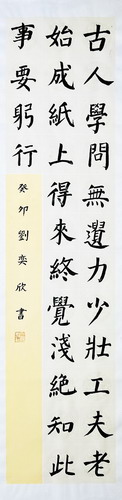 古人學問無遺力少壯工夫老
始成紙上得來終覺淺絕知此
事要躬行
癸卯劉奕欣書